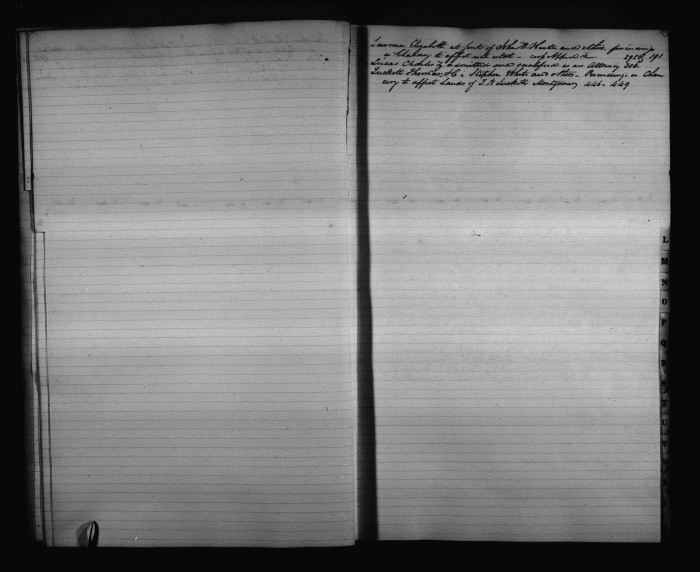 Lawrence Elizabeth at suit of John D. Hunter and others, proceedings
in Chancery to affect real estate - 195 & 198
Lucas Charles Z admitted and qualified as an Attorney 306.
Luckett Thomas H C. Stephen White and others - Proceedings in Chan
cery to affect Lands of T. H Luckett Montgomery 446-449
L
M
N
O
P
Q
R